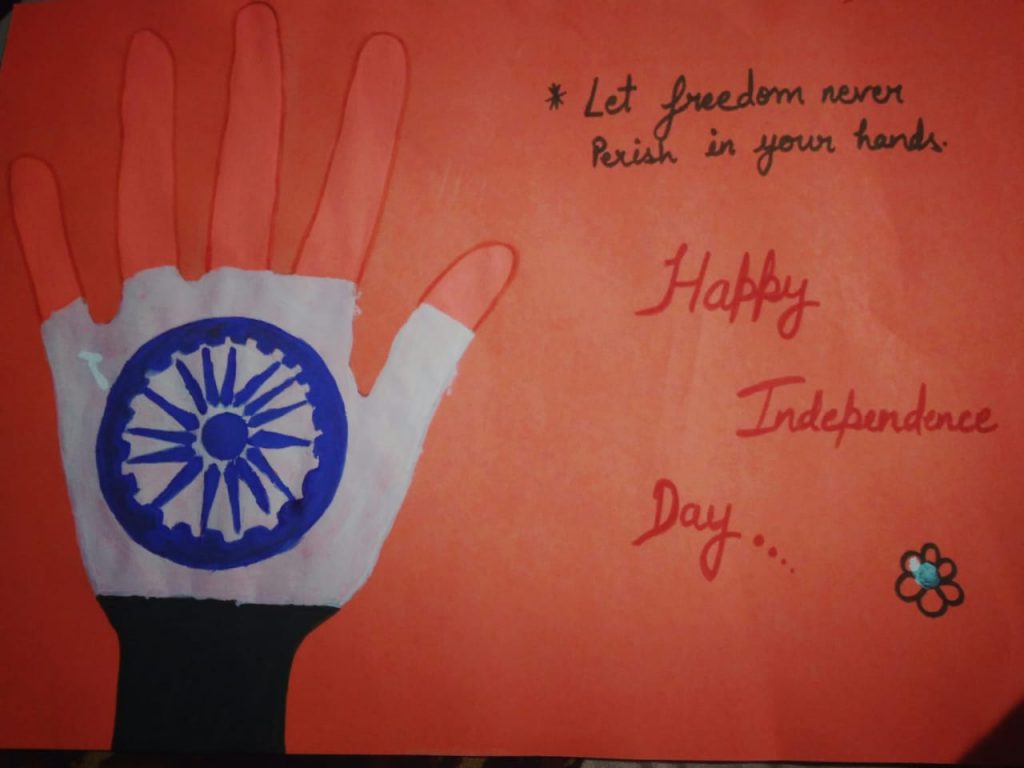 * Let freedom never
Perish in your hands.
Happy
Independence
Day....